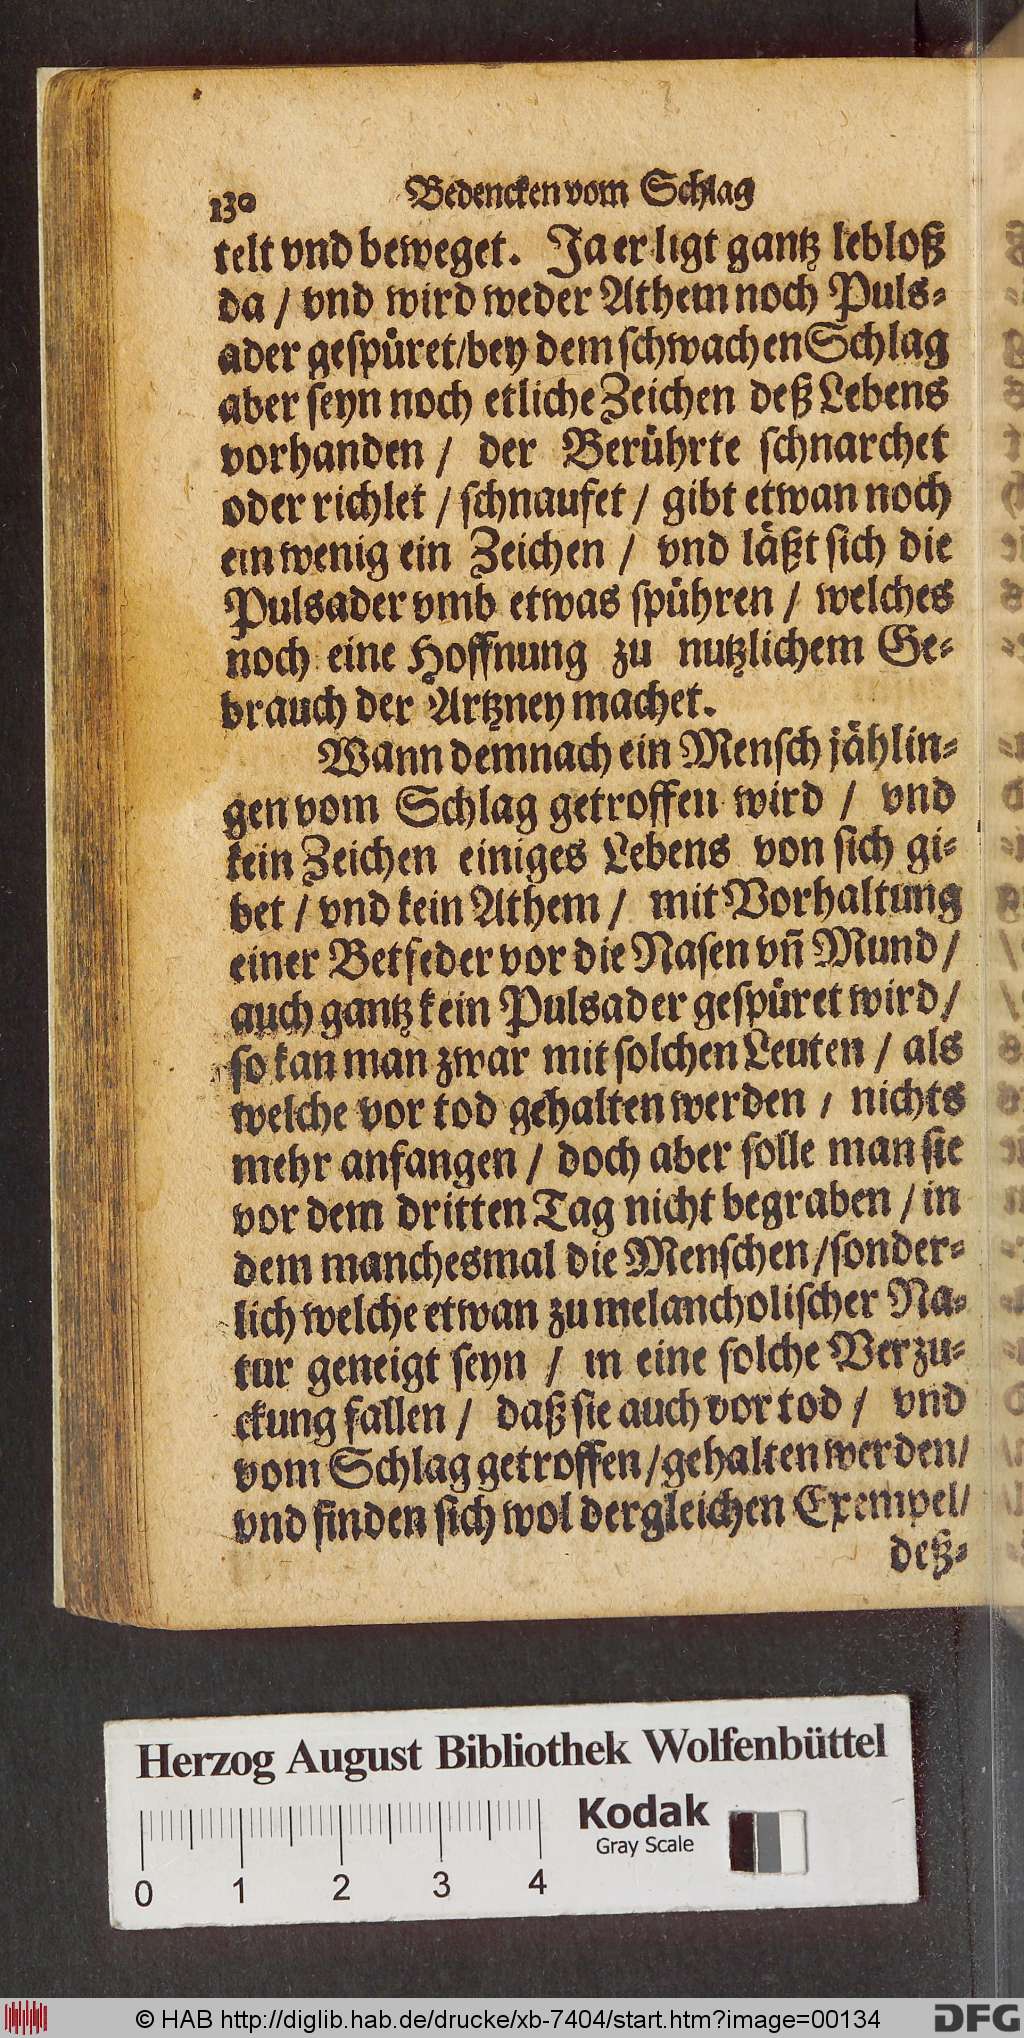 130 Bedencken vom Schlag
telt vnd beweget. Ja er ligt gantz lebloß
da / vnd wird weder Athem noch Puls-
ader gespüret/bey dem schwachen Schlag
aber seyn noch etliche Zeichen deß Lebens
vorhanden / der Berührte schnarchet
oder richlet / schnaufet / gibt etwan noch
ein wenig ein Zeichen / vnd läßt sich die
Pulsader vmb etwas spühren / welches
noch eine Hoffnung zu nutzlichem Ge-
brauch der Artzney machet.
Wann demnach ein Mensch jählin-
gen vom Schlag getroffen wird / vnd
kein Zeichen einiges Lebens von sich gi-
bet / vnd kein Athem / mit Vorhaltung
einer Betfeder vor die Nasen vñ Mund /
auch gantz kein Pulsader gespüret wird /
so kan man zwar mit solchen Leuten / als
welche vor tod gehalten werden / nichts
mehr anfangen / doch aber solle man sie
vor dem dritten Tag nicht begraben / in
dem manchesmal die Menschen/sonder-
lich welche etwan zu melancholischer Na-
tur geneigt seyn / in eine solche Verzu-
ckung fallen / daß sie auch vor tod / vnd
vom Schlag getroffen /gehalten werden/
vnd finden sich wol dergleichen Exempel/
deß-
Herzog August Bibliothek Wolfenbüttel
Kodak
Gray Scale
0 1 2 3 4
© HAB http://diglib.hab.de/drucke/xb-7404/start.htm?image=00134
DFG